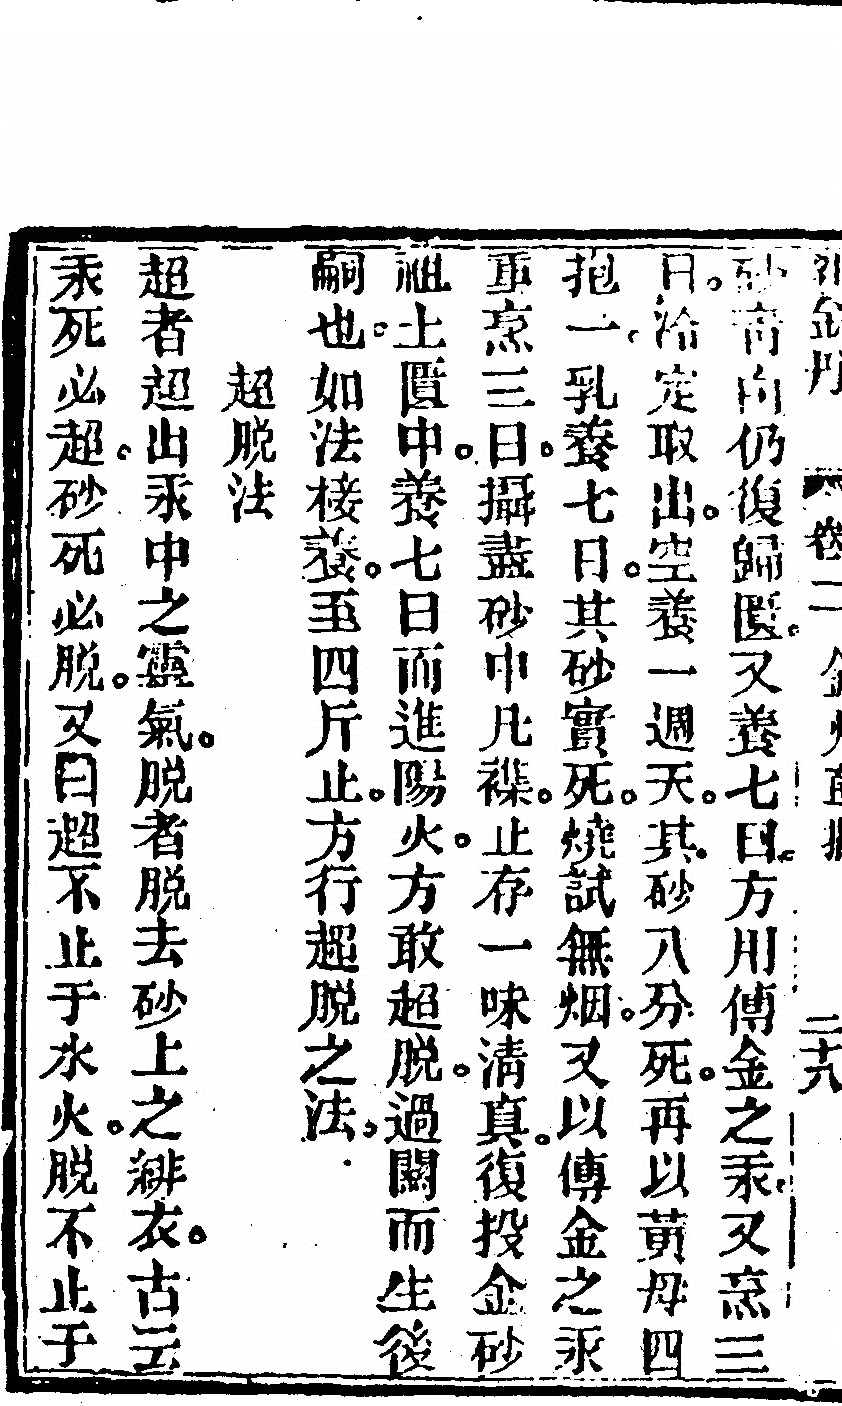 外金丹　卷二　金火直指　二十八
砂膏向仍復歸匱。又養七日。方用傅金之汞。又烹三
日。冷定取出。空養一週天。其砂八分死。再以黃母四
抱一。乳養七日。其砂實死。燒試無烟。又以傅金之汞
重烹三日。攝盡砂中凡襍。止存一味清真。復投金砂
祖上匱中。養七日而進陽火。方敢超脫。過關而生後
嗣也。如法接養。至四斤止。方行超脫之法。
超脫法
超者超出汞中之靈氣。脫者脫去砂上之緋衣。古云
汞死必超。砂死必脫。又曰超不止于水火。脫不止于